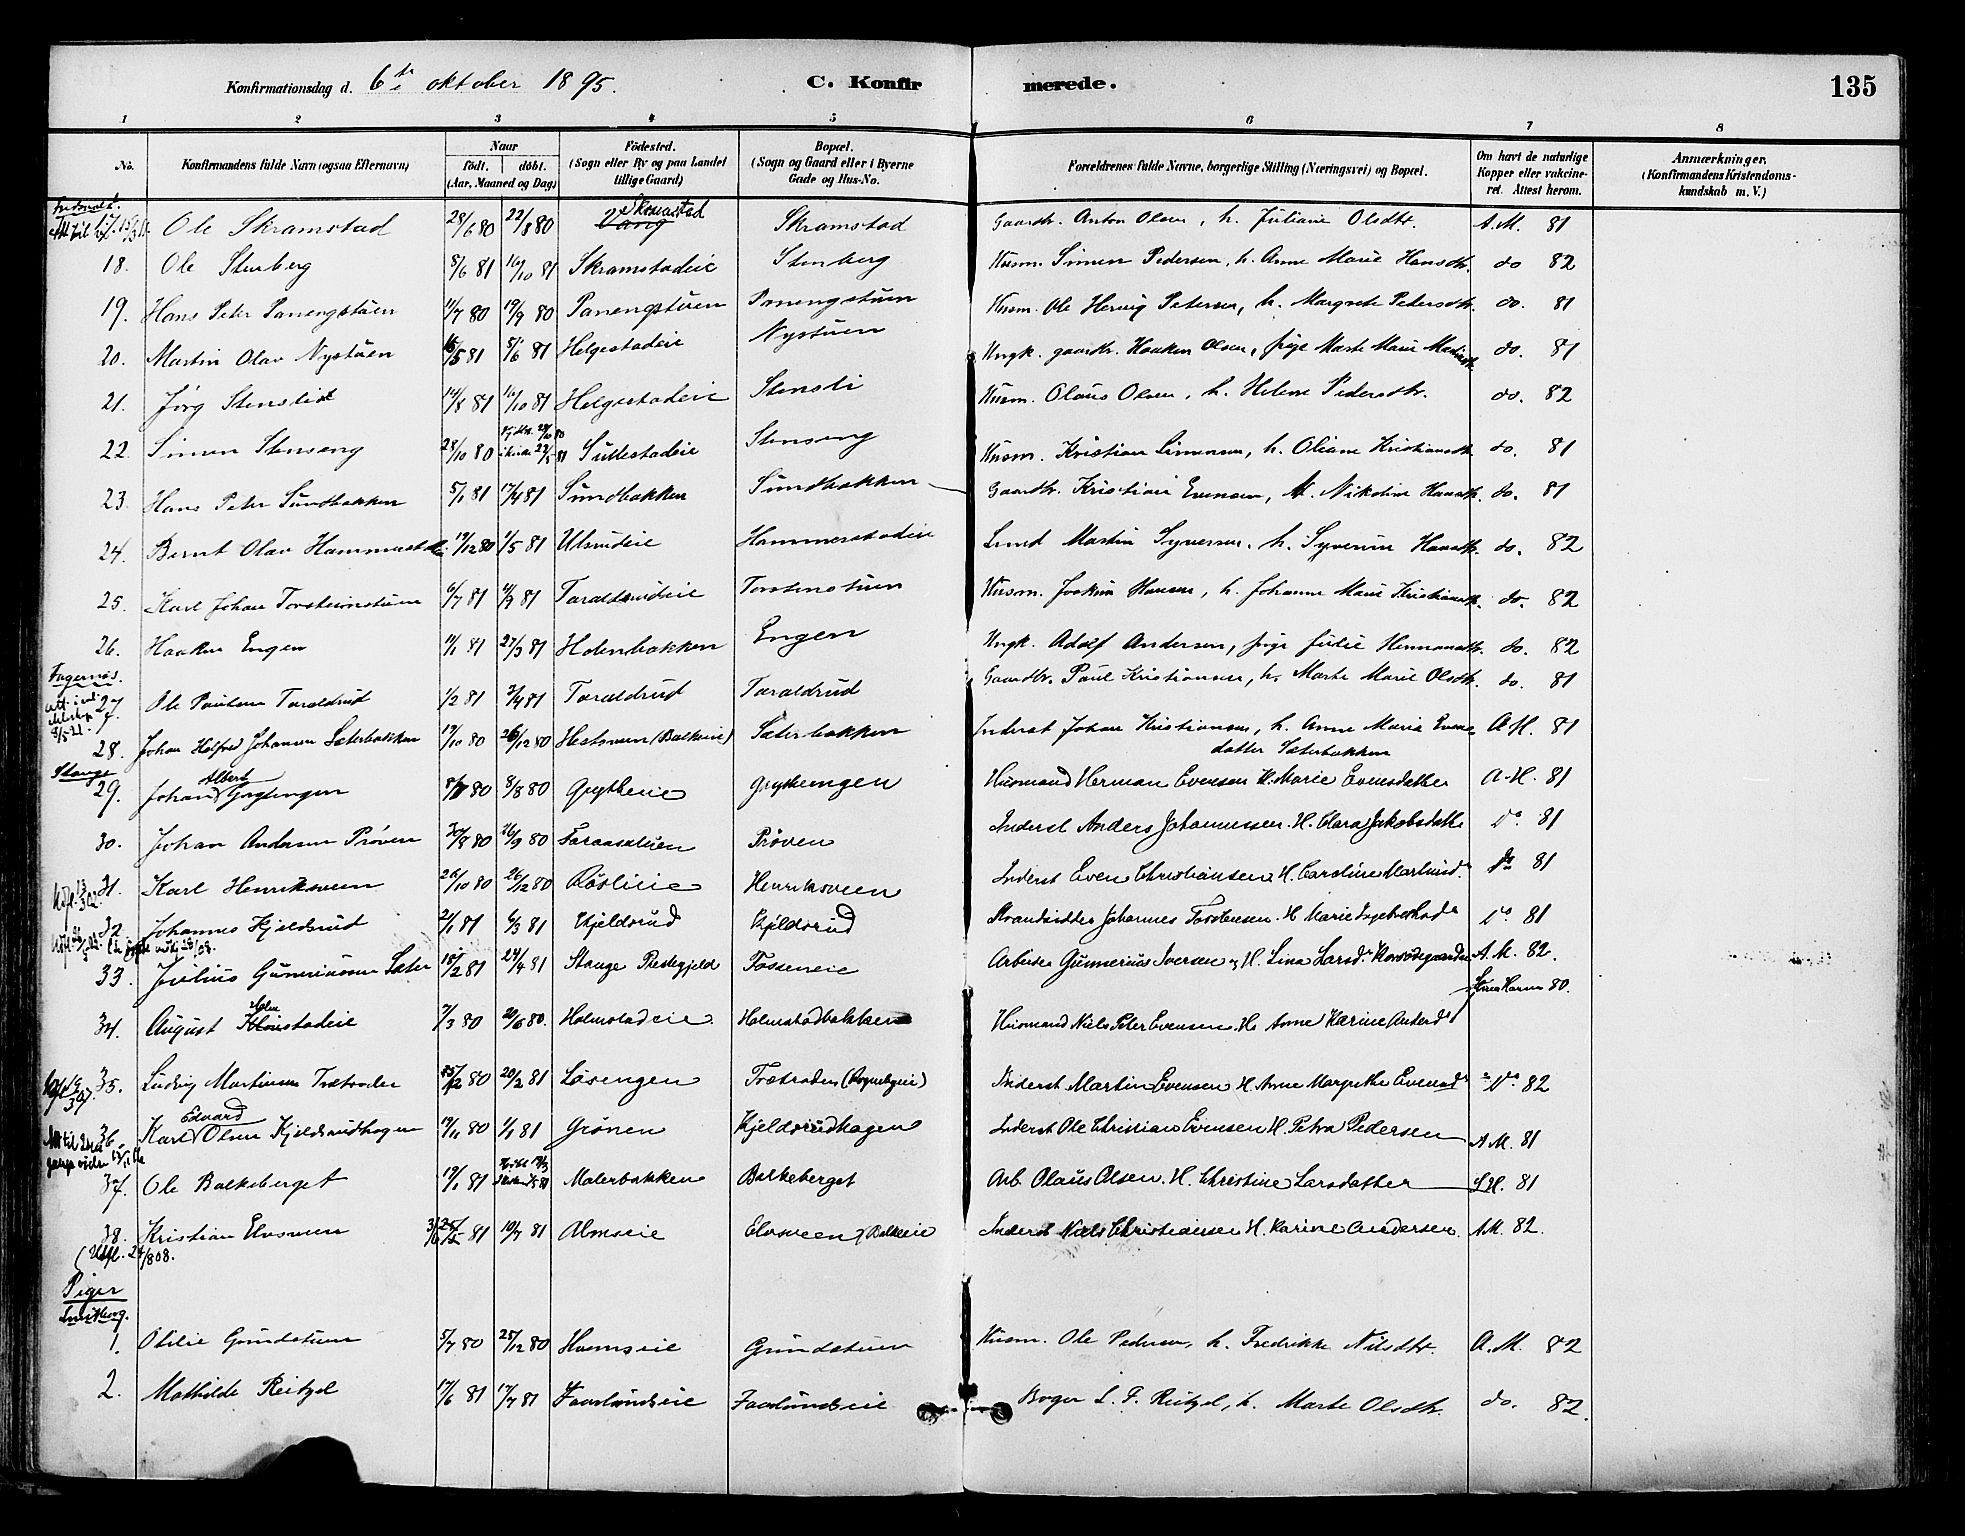 Konfirmationsdag d. 6te oktober 1895. C. Konfirmerede. 135
1 2 3 4 5 6 7 8
No. Konfirmandens fulde Navn (ogsaa Efternavn) Naar født. døbt. (Aar, Maaned og Dag) Fødested. (Sogn eller By og paa Landet tillige Gaard) Bopæl. (Sogn og Gaard eller i Byerne Gade og Hus-No. Forældrenes fulde Navne, borgerlige Stilling (Næringsvei) og Bopæl. Om havt de naturlige Kopper eller vaccineret. Attest herom. Anmærkninger. (Konfirmandens Kristendomskundskab m. V.)
17. Ole Skramstad 28/6 80 22/8 80 Vang Skramstad Skramstad Gaardbr. Anton Olsen, h. Juliane Olsdtr. A.M. 81
18. Ole Stenberg 8/6 81 16/10 81 Skramstadeie Stenberg Husm. Simen Pedersen, h. Anne Marie Hansdtr. do 82
19. Hans Peter Panengstuen 11/7 80 19/9 80 Panengstuen Panengstuen Husm. Ole Hervig Petersen, h. Margrete Petersdtr. do. 81
20. Martin Olav Nystuen 16/5 81 5/6 81 Helgestadeie Nystuen Ungk. gaardbr. Haaken Olsen, pige Marte Marie do. 81
21. Jørg Stenslid 14/8 81 16/10 81 Helgestadeie Stensli Husm. Olaus Olsen, h. Helene Pedersdtr. do. 82
22. Simen Stenseng 28/10 80 Sullestadeie Stenseng Husm. Kristian Simensen, h. Oliane Kristiansdtr. do. 81
23. Hans Peter Sundbakken 5/1 81 17/4 81 Sundbakken Sundbakken Gaardbr. Kristian Evensen, h. Nikoline Hansdtr. do. 81
24. Bernt Olav Hammerstad 19/12 80 1/5 81 Ulsrudeie Hammerstadeie Martin Syversen, h. Syverine Hansdtr. do. 82
25. Karl Johan Torsteinstuen 6/7 81 4/9 81 Taraldsrudeie Torstenstuen Husm. Joakim Hansen, h. Johanne Marie Kristiansdtr. do. 82
26. Haaken Engen 11/1 81 27/3 81 Holenbakken Engen Ungk. Adolf Andersen, pige Julie Hermansdtr. do. 82
Fagernæs.
27. Ole Paulsen Taraldrud 1/2 81 3/4 81 Taraldrud Taraldrud Gaardbr. Paul Kristiansen, h. Marte Marie Olsdtr. do. 81
28. Johan Halfred Johansen Sæterbakken 19/10 80 26/12 80 Hestsveen (Balkeeie) Sæterbakken Inderst Johan Kristiansen, h. Anne Maria Evensdatter Sæterbakken A.H. 81
Stange
29. Johan Albert Grytengen 8/8 80 Grytheeie Grythengen Husmand Herman Evensen H. Marie Evensdatter A-H. 81
30. Johan Andersen Prøven 26/9 80 Prøven Inderst Anders Johannessen. H. Clara Jakobsdatte Do. 81
31. Karl Henriksveen 26/10 80 26/12 80 Røslieie Henriksveen Inderst Even Christiansen H. Caroline Martinsd. Do 81
32 Johannes Kjeldsrud 2/1 81 6/3 81 Kjeldsrud Kjeldsrud Strandsidder Johannes Torstensen. H Marie Do 81
33. Julius Gunneriusen Sæter 18/2 81 24/4 81 Stange Prestegjeld Fosseneie Arbeider Gunnerius Iversen og H. Lina Larsd. A.M. 82.
34. August Holmstadeie 7/3 80 20/6 80. Holmstadeie Holmstadbakken Husmand Niels Peter Evensen. H. Anne Karine Andersd 80.
35. Ludvig Martinsen Trætraden 25/12 80 20/2 81 Løsengen Trætraden Inderst Martin Evensen H. Anne Margrethe Evensd Do 82
36. Karl Edvard Olsen Kjeldsrudhagen 19/11 80 1/1 81 Grønen Kjeldsrudhagen Inderst Ole Christian Evensen H. Petra Pedersen A M. 81
37. Ole Balkeberget 19/1 81 Malerbakken Balkeberget Arb. Olaus Olsen. H. Christine Larsdatter S.H. 81
38. Kristian Elvsveen 81 10/7 81 Almseie Elvsveen (Balkeeie Inderst Niels Christiansen H. Karine Andersen. A.M. 82.
(Udfl. 24/8 08.
Piger
1. Otilie Grundstuen 5/7 80 25/12 80 Hvemseie Grundstuen Husm. Ole Pedersen, h. Fredrikke Nilsdtr. A.M. 82
2. Mathilde Reitzel 17/6 81 17/7 81 Faarlundseie Faarlundseie Bager L. F. Reitzel, h. Marte Olsdtr. do. 82.